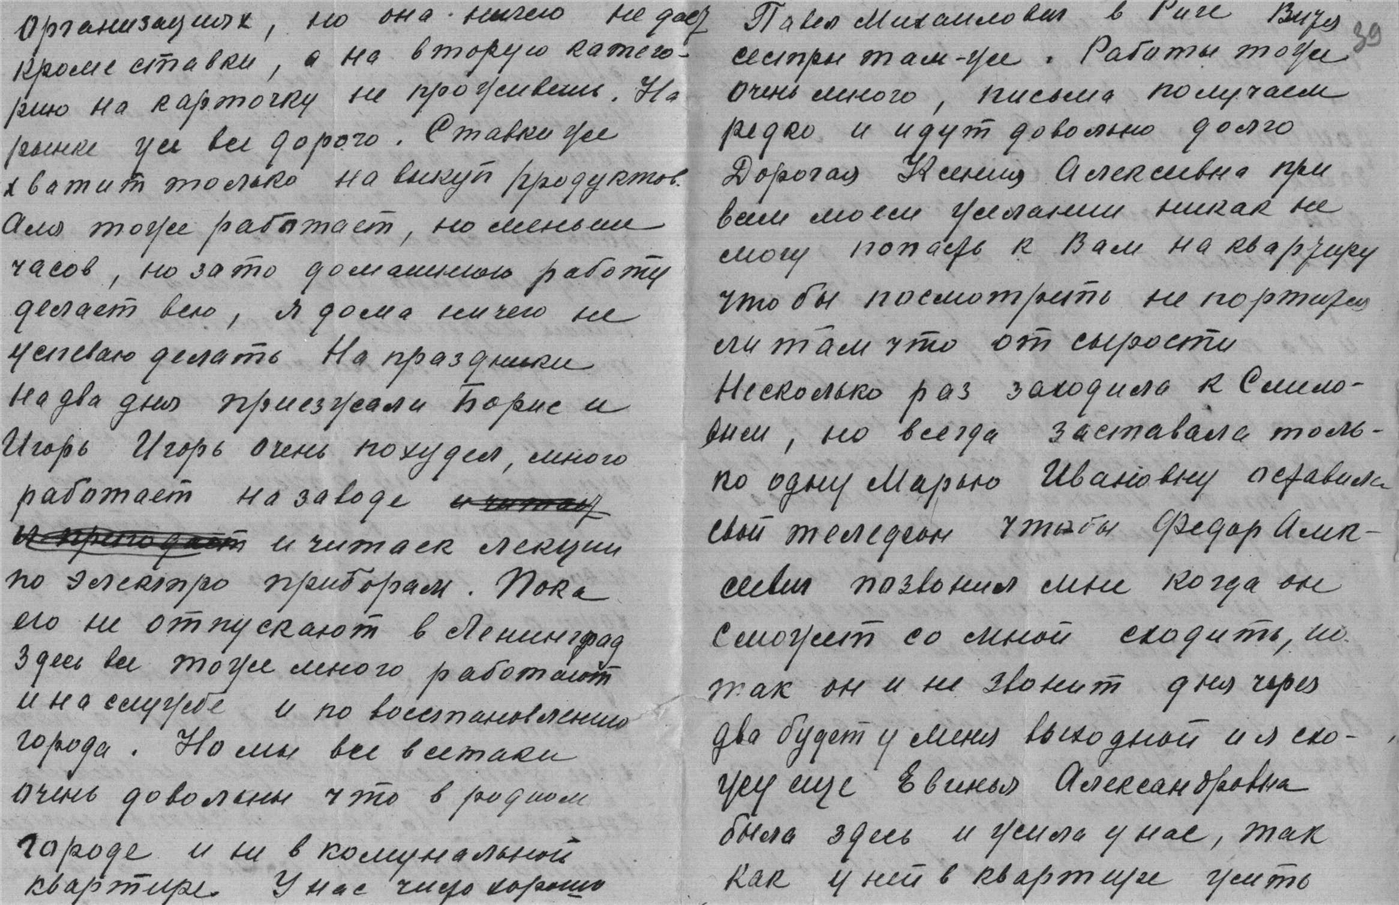 организациях, но она ничего не дает
кроме ставки, а на вторую катего-
рию на карточку не проживешь. На
рынке уж все дорого. Ставки уж
хватит только на выкуп продуктов.
Аля тоже работает, но меньше
часов, но зато домашнюю работу
делает всю, я дома ничего не
успеваю делать На праздники
на два дня приезжали Борис и
Игорь Игорь очень похудел, много
работает на заводе и читает
и преподает и читаек лекции
по электро приборам. Пока
его не отпускают в Ленинград
Здесь все тоже много работают
и на службе и по восстановлению
города. Но мы все всетаки
очень довольны что в родном
городе и не в комунальной
квартире. У нас чисто хорошо
Павел Михайлович в Риге
сестры там-же. Работы тоже
очень много, письма получаем
редко и идут довольно долго
Дорогая Ксения Алексевна при
всем моем желании никак не
могу попасть к Вам на квартиру
чтобы посмотреть не портится
ли там что от сырости
Несколько раз заходила к Смило-
вим, но всегда заставала толь-
ко одну Марью Ивановну оставила
свой телефон чтобы Федор Алек-
севич позвонил мне когда он
сможет со мной сходить, но
так он и не звонит дня через
два будет у меня выходной и я схо-
жу еще Евгенья Александровна
была здесь и жила у нас, так
как у ней в квартире жить
39